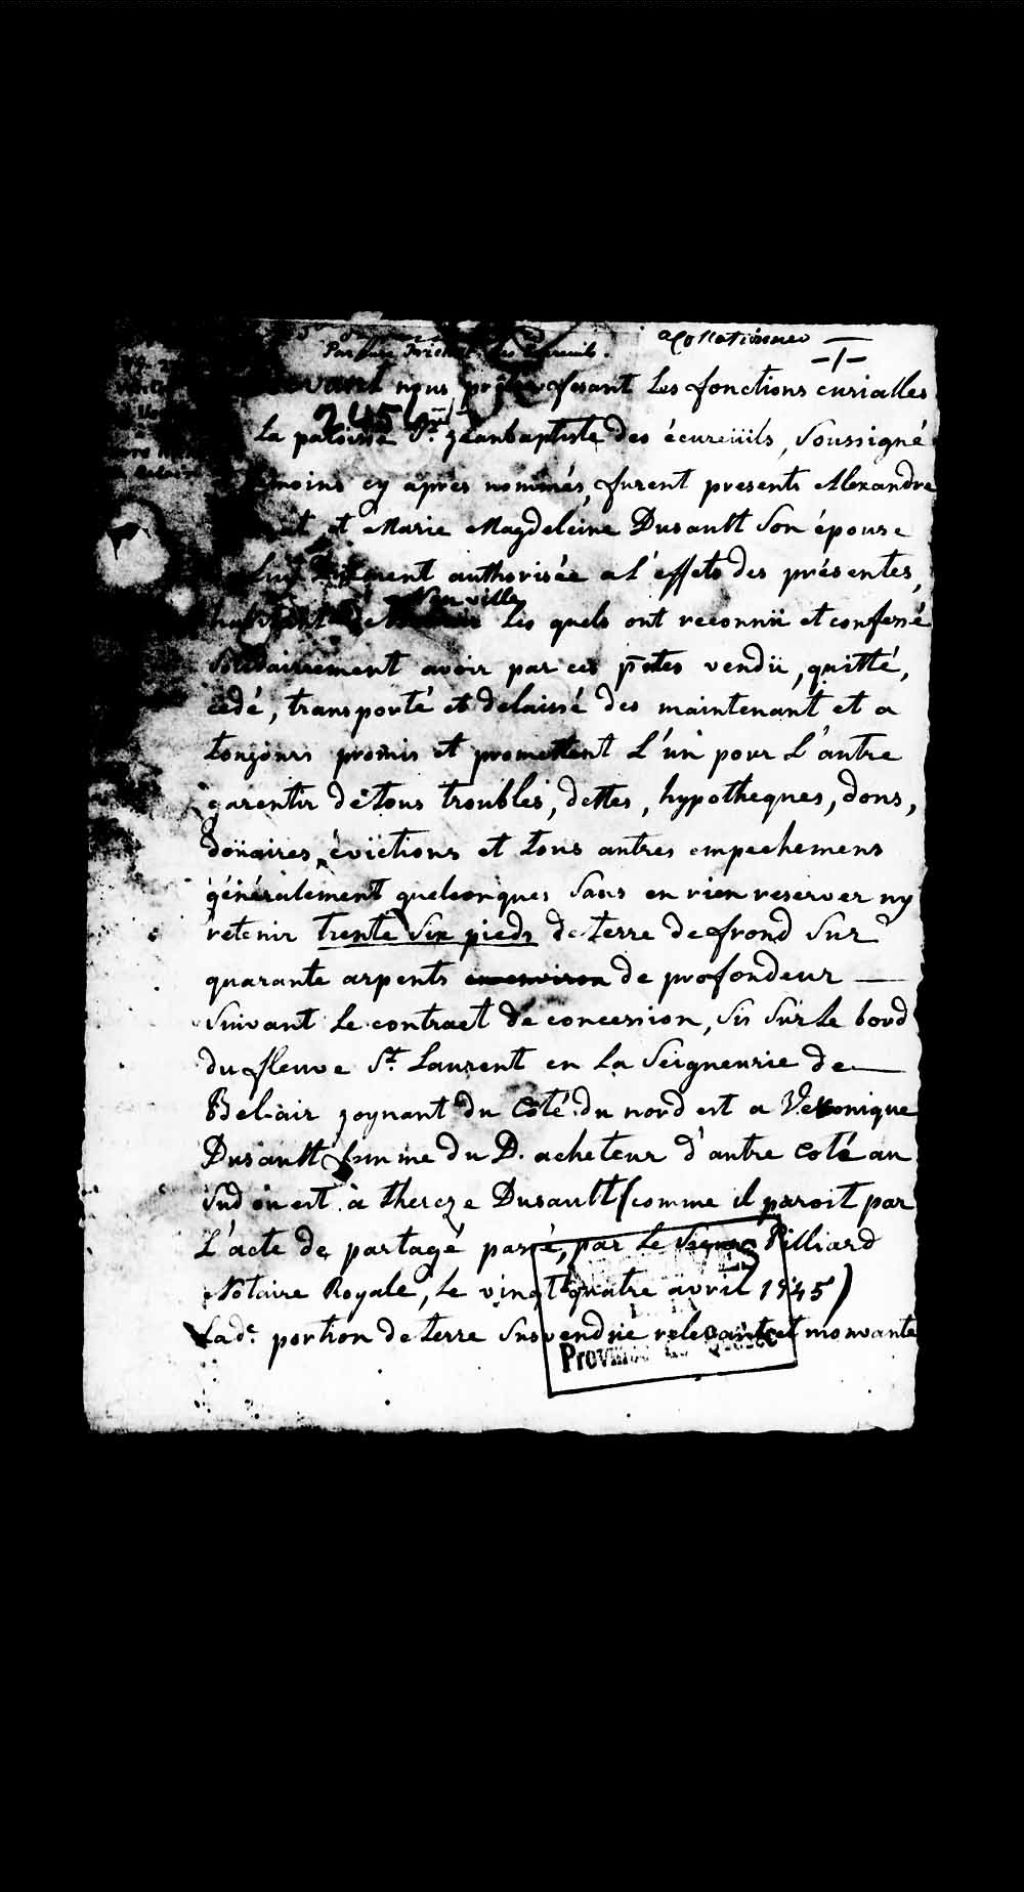 acollationneo
Par
nous prêtre fesant les fonctions curialles
2456
la paroisse St. jeanbaptiste des écureüils, Soussigné
cy apres nommés, furent presents Alexandre
et Marie Magdeleine Dusault Son épouse
authorisée a l'effets des présentes,
Neuville
les quels ont reconnü et confessé
Solidairement avoir par ces p̄ntes vendü, quitté,
cedé, transporté et delaissé des maintenant et a
toujours promis et promettent L'un pour L'autre
garentir de tous troubles, dettes, hypotheques, dons,
doüaires, évictions et tous autres empechemens
généralement quelconques Sans en rien reserver ny
retenir trente Six pieds de terre de frond Sur
quarante arpents de profondeur —
Suivant le contract de concession, Sis Sur le bord
du fleuve St. Laurent en la Seigneurie de —
Belair joynant du Coté du nord est a Veronique
Dusault femme du D. acheteur d'autre Coté au
Sud ouest à thereze Dusault (comme il paroit par
L'acte de partagé passé, par le Pilliard
Notaire Royale, le vingt quatre avril 1745)
Lade. portion de terre Susvendüe relevante et mouvante
ARCHIVES
DE LA
Province de Québec